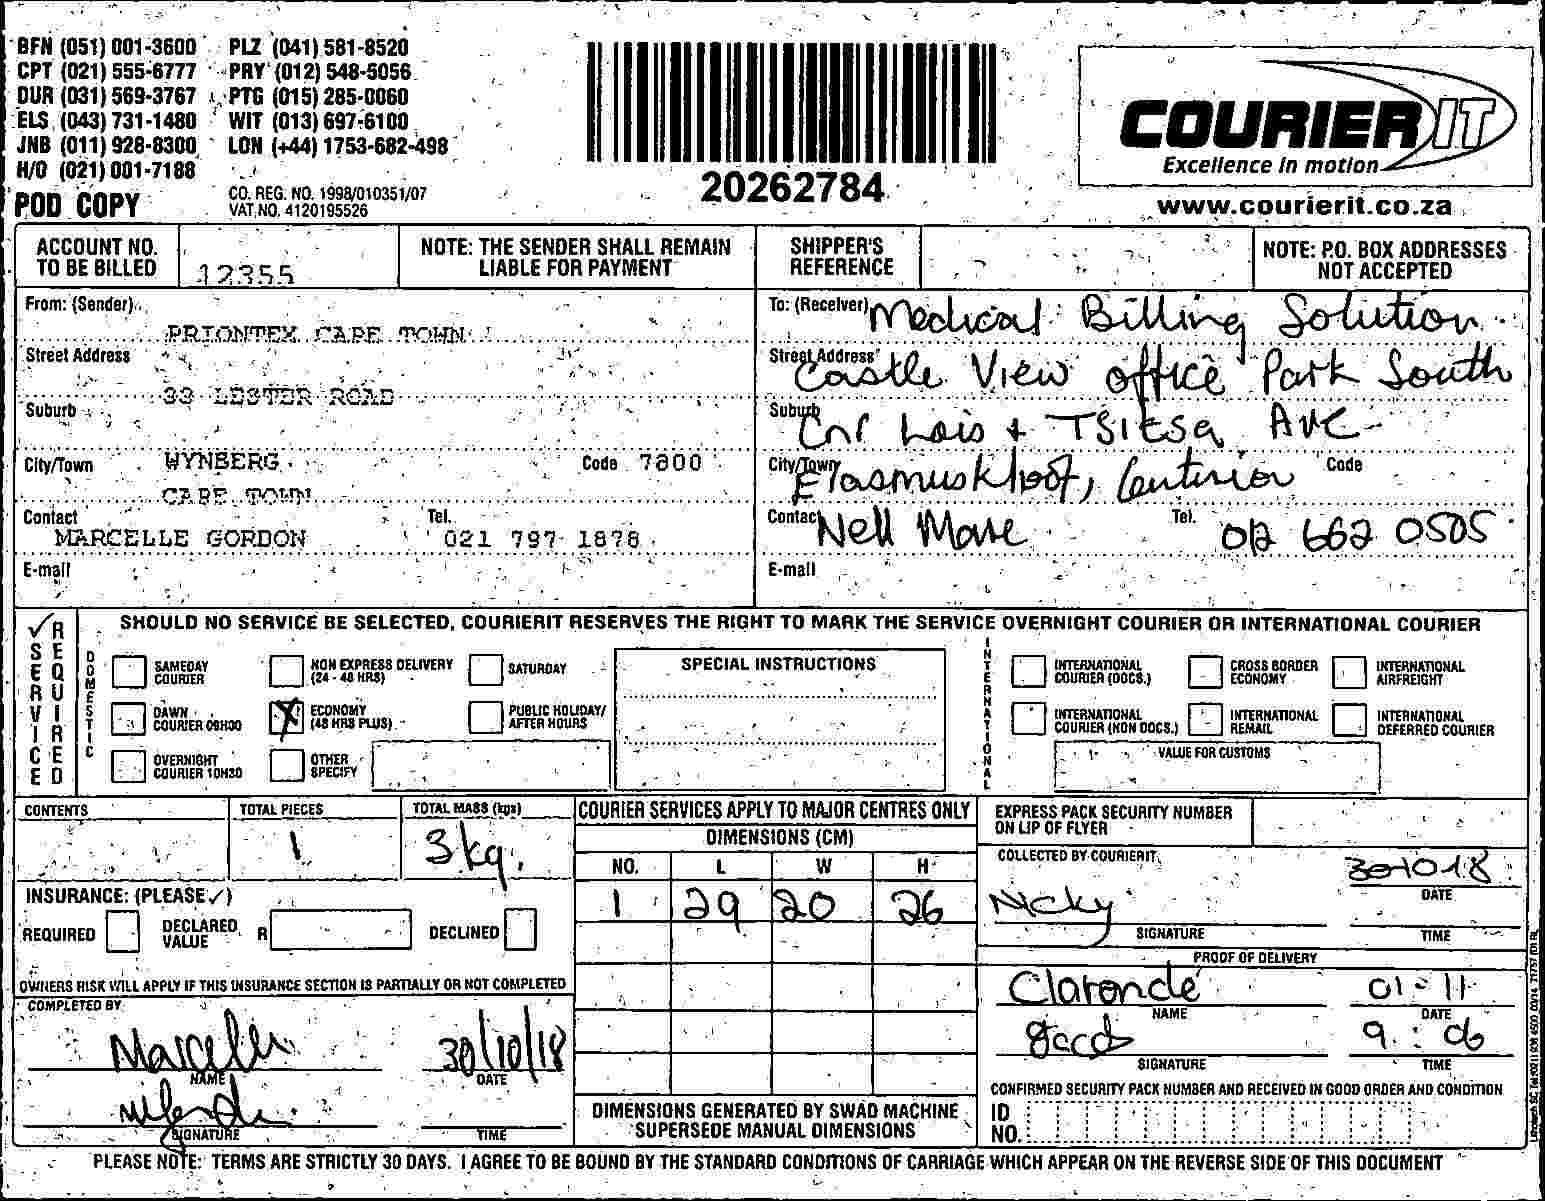 BFN (051) 001-3600 PLZ (041) 581-8520
CPT (021) 555-6777 PRY (012) 548-5056
DUR (031) 569-3767 PTG (015) 285-0060
ELS (043) 731-1480 WIT (013) 697-6100
JNB (011) 928-8300 LON (+44) 1753-682-498
H/O (021) 001-7188
POD COPY
CO. REG. NO. 1998/010351/07
VAT NO. 4120195526
20262784
COURIER IT
Excellence in motion
www.courierit.co.za
ACCOUNT NO. TO BE BILLED 12355
NOTE: THE SENDER SHALL REMAIN LIABLE FOR PAYMENT
SHIPPER'S REFERENCE
NOTE: P.O. BOX ADDRESSES NOT ACCEPTED
From: (Sender)
PRIONTEX CAPE TOWN
Street Address
33 LESTER ROAD
Suburb
City/Town WYNBERG Code 7800
CAPE TOWN
Contact MARCELLE GORDON Tel. 021 797 1878
E-mail
To: (Receiver) Medical Billing Solution
Street Address Castle View office Park South
Suburb Cnr Lois + Tsitsa Ave
City/Town Erasmuskloof, Centurion Code
Contact Nell Tel. 012 662 0505
E-mail
✓ SERVICE REQUIRED
SHOULD NO SERVICE BE SELECTED, COURIERIT RESERVES THE RIGHT TO MARK THE SERVICE OVERNIGHT COURIER OR INTERNATIONAL COURIER
DOMESTIC
SAMEDAY COURIER
NON EXPRESS DELIVERY (24 - 48 HRS)
SATURDAY
DAWN COURIER 09H00
X ECONOMY (48 HRS PLUS)
PUBLIC HOLIDAY/ AFTER HOURS
OVERNIGHT COURIER 10H30
OTHER SPECIFY
SPECIAL INSTRUCTIONS
INTERNATIONAL
INTERNATIONAL COURIER (DOCS.)
CROSS BORDER ECONOMY
INTERNATIONAL AIRFREIGHT
INTERNATIONAL COURIER (NON DOCS.)
INTERNATIONAL REMAIL
INTERNATIONAL DEFERRED COURIER
VALUE FOR CUSTOMS
CONTENTS
TOTAL PIECES 1
TOTAL MASS (kgs) 3kg.
INSURANCE: (PLEASE ✓)
REQUIRED DECLARED VALUE R DECLINED
OWNERS RISK WILL APPLY IF THIS INSURANCE SECTION IS PARTIALLY OR NOT COMPLETED
COMPLETED BY
Marcelle 30/10/18
NAME DATE
SIGNATURE TIME
COURIER SERVICES APPLY TO MAJOR CENTRES ONLY
DIMENSIONS (CM)
NO. L W H
1 29 20 26
DIMENSIONS GENERATED BY SWAD MACHINE
SUPERSEDE MANUAL DIMENSIONS
EXPRESS PACK SECURITY NUMBER
ON LIP OF FLYER
COLLECTED BY COURIERIT
Nicky 301018
DATE
SIGNATURE TIME
PROOF OF DELIVERY
01-11
NAME DATE
9:06
SIGNATURE TIME
CONFIRMED SECURITY PACK NUMBER AND RECEIVED IN GOOD ORDER AND CONDITION
ID NO.
PLEASE NOTE: TERMS ARE STRICTLY 30 DAYS. I AGREE TO BE BOUND BY THE STANDARD CONDITIONS OF CARRIAGE WHICH APPEAR ON THE REVERSE SIDE OF THIS DOCUMENT